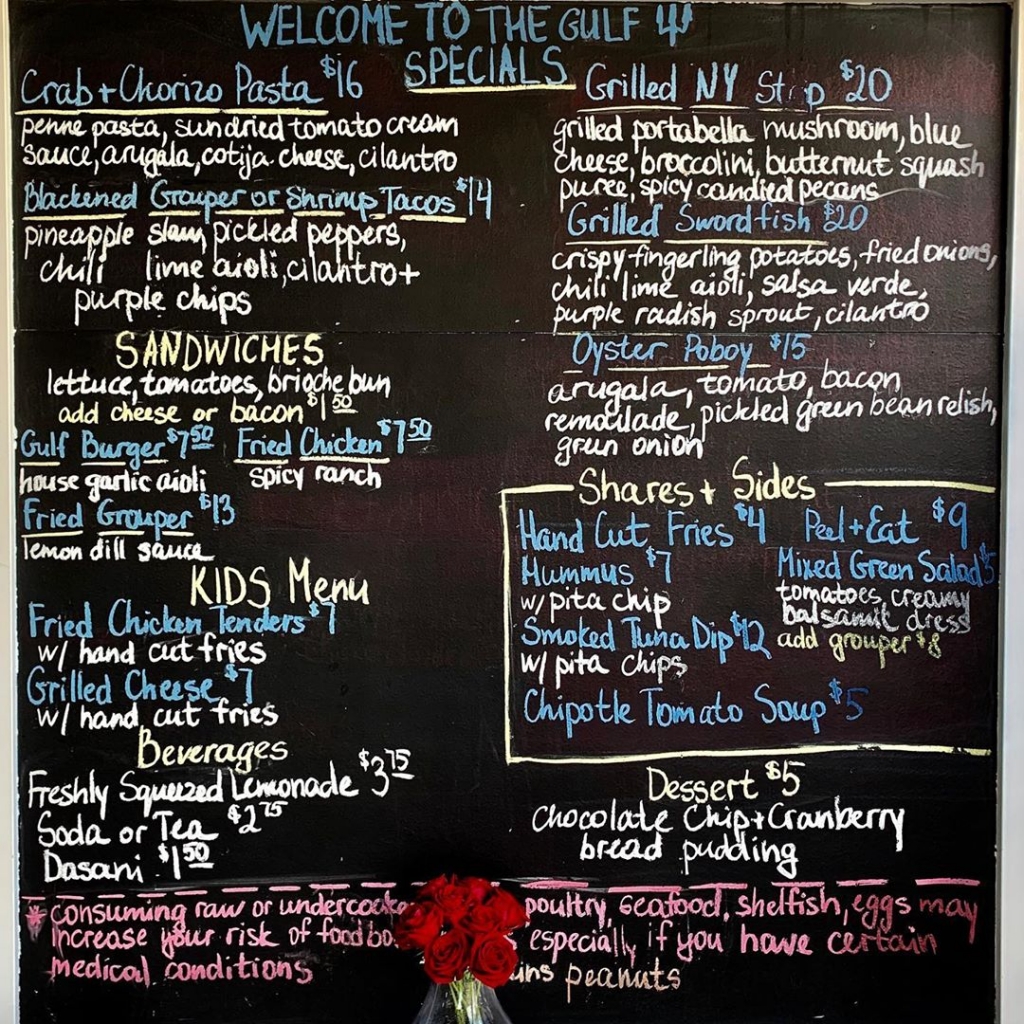 WELCOME TO THE GULF
SPECIALS
Crab + Chorizo Pasta $16
penne pasta, sundried tomato cream
sauce, arugala, cotija cheese, cilantro
Blackened Grouper or Shrimp Tacos $14
pineapple slaw, pickled peppers,
chili lime aioli, cilantro +
purple chips
SANDWICHES
lettuce, tomatoes, brioche bun
add cheese or bacon $1.50
Gulf Burger $7.50 Fried Chicken $7.50
house garlic aioli spicy ranch
Fried Grouper $13
lemon dill sauce
KIDS Menu
Fried Chicken Tenders $7
w/ hand cut fries
Grilled Cheese $7
w/ hand cut fries
Beverages
Freshly Squeezed Lemonade $3.75
Soda or Tea $2.75
Dasani $1.50
Grilled NY Strip $20
grilled portabella mushroom, blue
cheese, broccolini, butternut squash
puree, spicy candied pecans
Grilled Swordfish $20
crispy fingerling potatoes, fried onions,
chili lime aioli, salsa verde,
purple radish sprout, cilantro
Oyster Poboy $15
arugala, tomato, bacon
remoulade, pickled green bean relish,
green onion
Shares + Sides
Hand Cut Fries $4
Hummus $7
w/ pita chip
Smoked Tuna Dip $12
w/ pita chips
Chipotle Tomato Soup $5
Peel + Eat $9
Mixed Green Salad $5
tomatoes, creamy
balsamic dress
add grouper $8
Dessert $5
chocolate chip + Cranberry
bread pudding
* consuming raw or undercooke poultry, seafood, shelfish, eggs may
increase your risk of food bo especially if you have certain
medical conditions ins peanuts